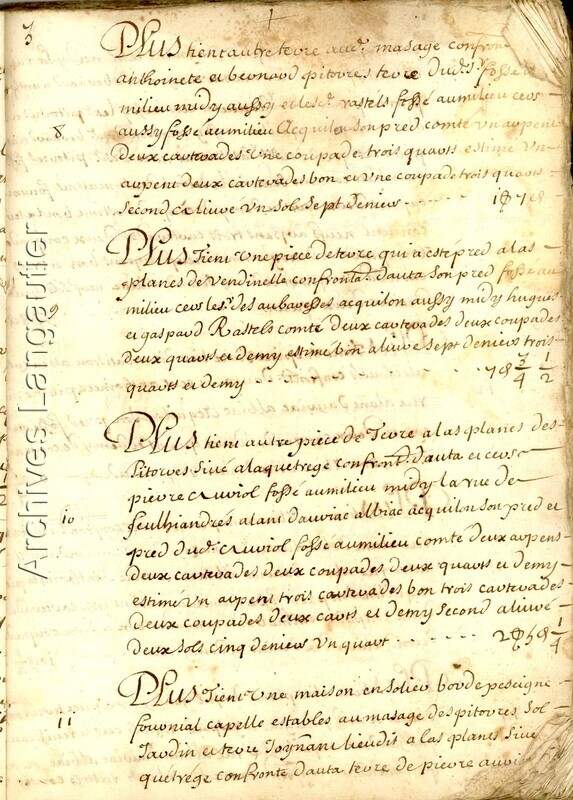 3
Plus tient autre terre aud.t masage confron
anthoinete et bernard pitorres terre dud.s fosse
milieu midy aussy et les.d rastels fossé aumilieu cers
8
aussy fossé aumilieu Acquilon son pred comte un arpent
deux carterades une coupade trois quarts estimé un
arpent deux carterades bon et une coupade trois quarts
second alivré un sol sept deniers
Plus Tient une piece de terre qui a esté pred a las
planes de vendinelle confront.a d'auta son pred fossé au
9
milieu cers les.d des aubaresses acquilon aussy midy hugues
et gaspard Rastels comté deux carterades deux coupades
deux quarts et demy estimé bon alivré sept deniers trois
quarts et demy 7 8 3/4 1/2
Plus tient autre piece de Terre a las planes des
pitorres sivé alaquetrege confront.a d'auta et cers
pierre cruviol fossé aumilieu midy la rue de
10
feulhiandrés alani dauriac albiac acquilon son pred et
pred dud.t cruviol fossé aumilieu comté deux arpens
deux carterades deux coupades deux quarts et demy
estimé un arpent trois carterades bon trois carterades
deux coupades deux carts et demy second alivré
deux sols cinq deniers un quart 2 5 1/4
Plus Tient une maison en solier borde peseigne
11
fournial capelle estables au masage des pitorres sol
Jardin et terre Joignant lieudit a las planes sivé
quetrége confronte d'auta terre de pierre
Archives Langautier